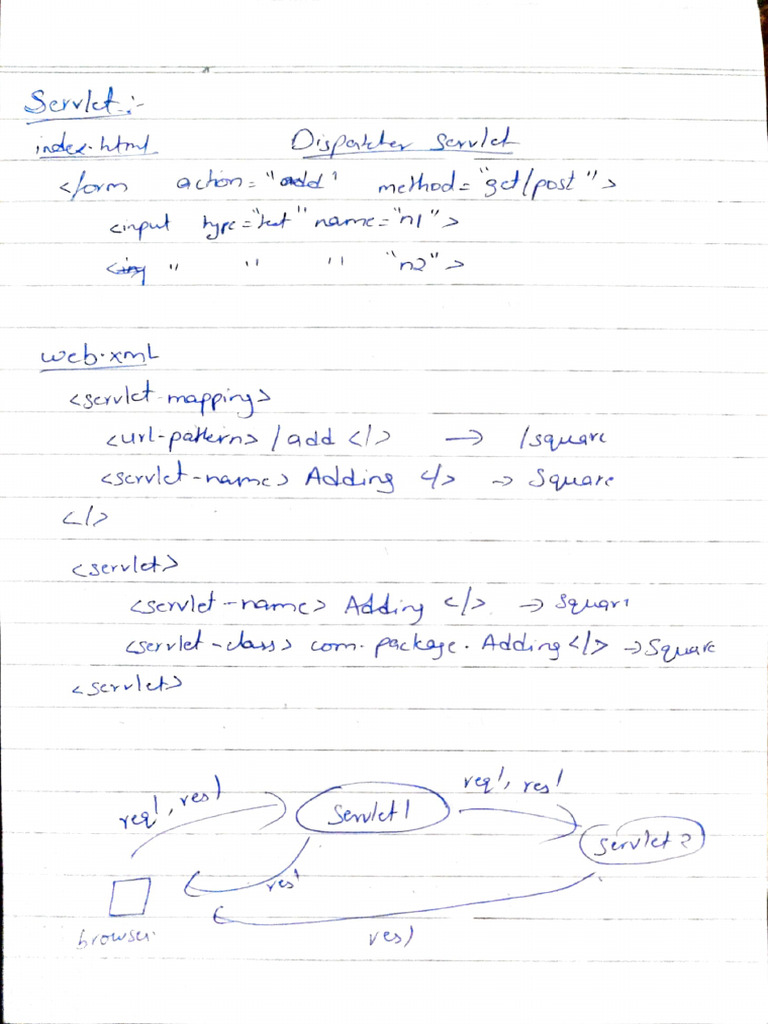 Servlet:-
index.html Dispatcher servlet
</form action="add" method="get/post">
<input type="text" name="n1">
" " " "n2">
web.xml
<servlet-mapping>
<url-pattern> /add </> → /square
<servlet-name> Adding </> → Square
</>
<servlet>
<servlet-name> Adding </> → Square
<servlet-class> com.package.Adding </> → Square
<servlet>
req1, res1 Servlet 1 req1, res1
Servlet 2
res1
browser
res1